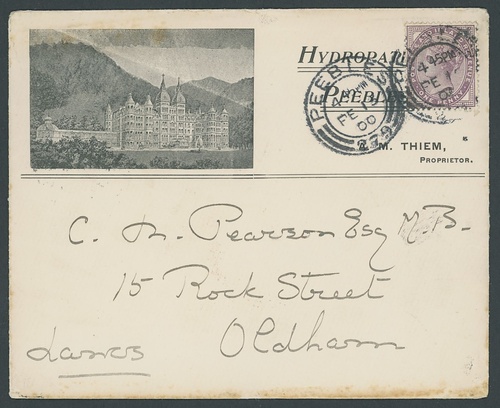 HYDROPATHIC
PEEBLES
M. THIEM,
PROPRIETOR.
PEEBLES
4 45PM
FE
00
279
C. M. Pearson Esq M.B.
15 Rock Street
Oldham
Lancs